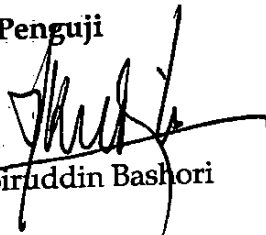 Penguji
iruddin Bashori